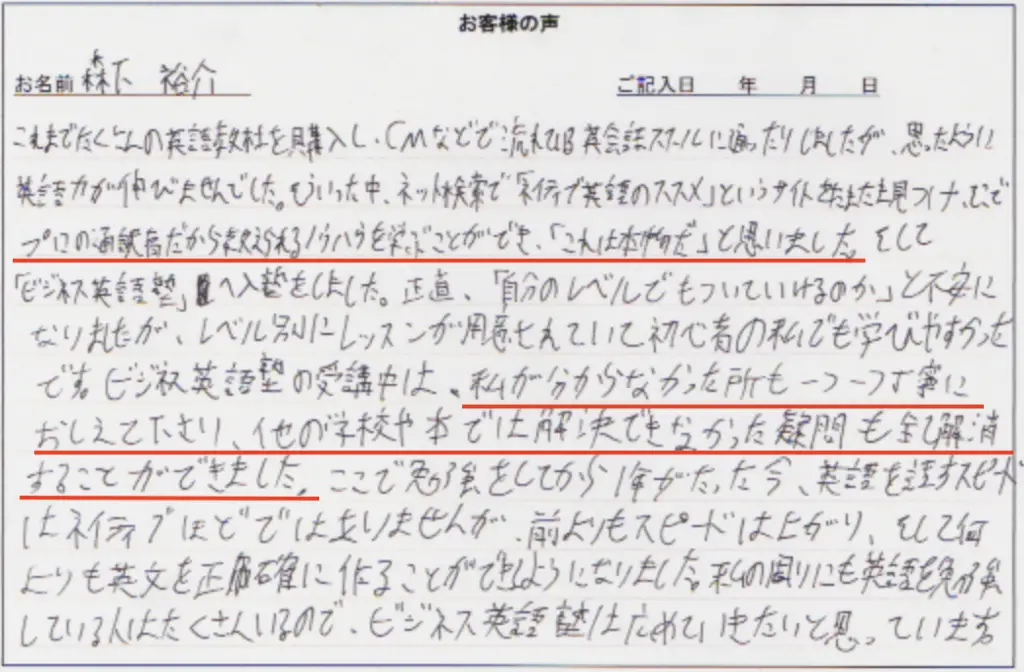 お客様の声
お名前 森下 裕介 ご記入日 年 月 日
これまでたくさんの英語教材を購入し、CMなどで流れている英会話スクールに通ったりしましたが、思ったように
英語力が伸びませんでした。そういった中、ネット検索で「ネイティブ英語のススメ」というサイトをたまたま見つけ、
プロの通訳者だから教えられるノウハウを学ぶことができ、「これは本物だ」と思いました。そして
「ビジネス英語塾」へ入塾をしました。正直、「自分のレベルでもついていけるのか」と不安に
なりましたが、レベル別にレッスンが用意されていて初心者の私でも学びやすかった
です。ビジネス英語塾の受講中は、私が分からなかった所も一つ一つ丁寧に
おしえて下さり、他の学校や本では解決できなかった疑問も全て解消
することができました。ここで勉強をしてから1年がたった今、英語を話すスピード
はネイティブほどではありませんが、前よりもスピードは上がり、そして何
よりも英文を正確に作ることができるようになりました。私の周りにも英語を勉強
している人はたくさんいるので、ビジネス英語塾はためていきたいと思っています